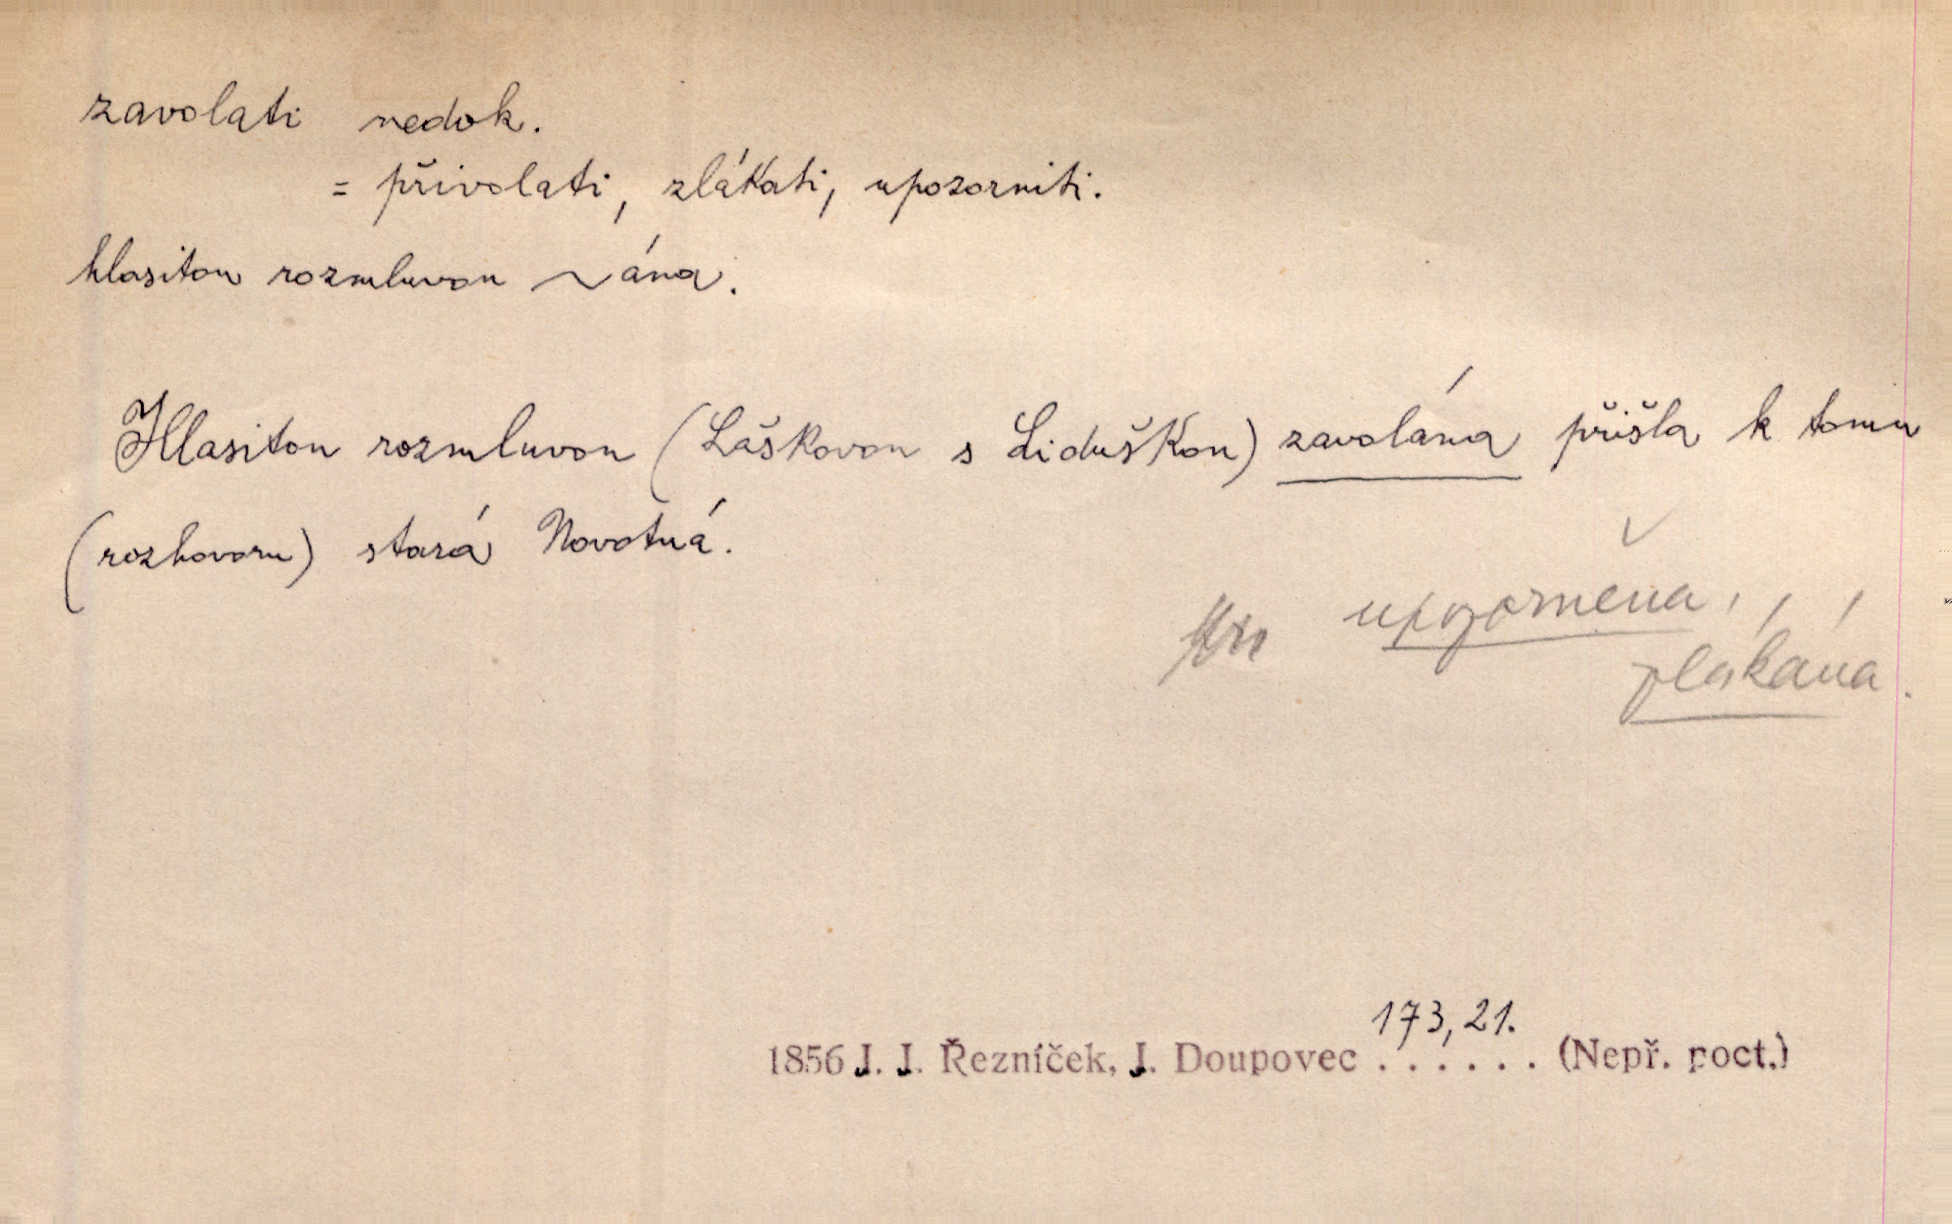 zavolati nedok.
= přivolati, zlákati, upozorniti.
hlasitou rozmluvou ~ána.
Hlasitou rozmluvou (Láškovou s Liduškou) zavolána přišla k tomu
(rozhovoru) stará Novotná.
upozorněna,
zlákána.
173,21.
1856 J. J. Řezníček, J. Doupovec . . . . . . (Nepř. poct.)